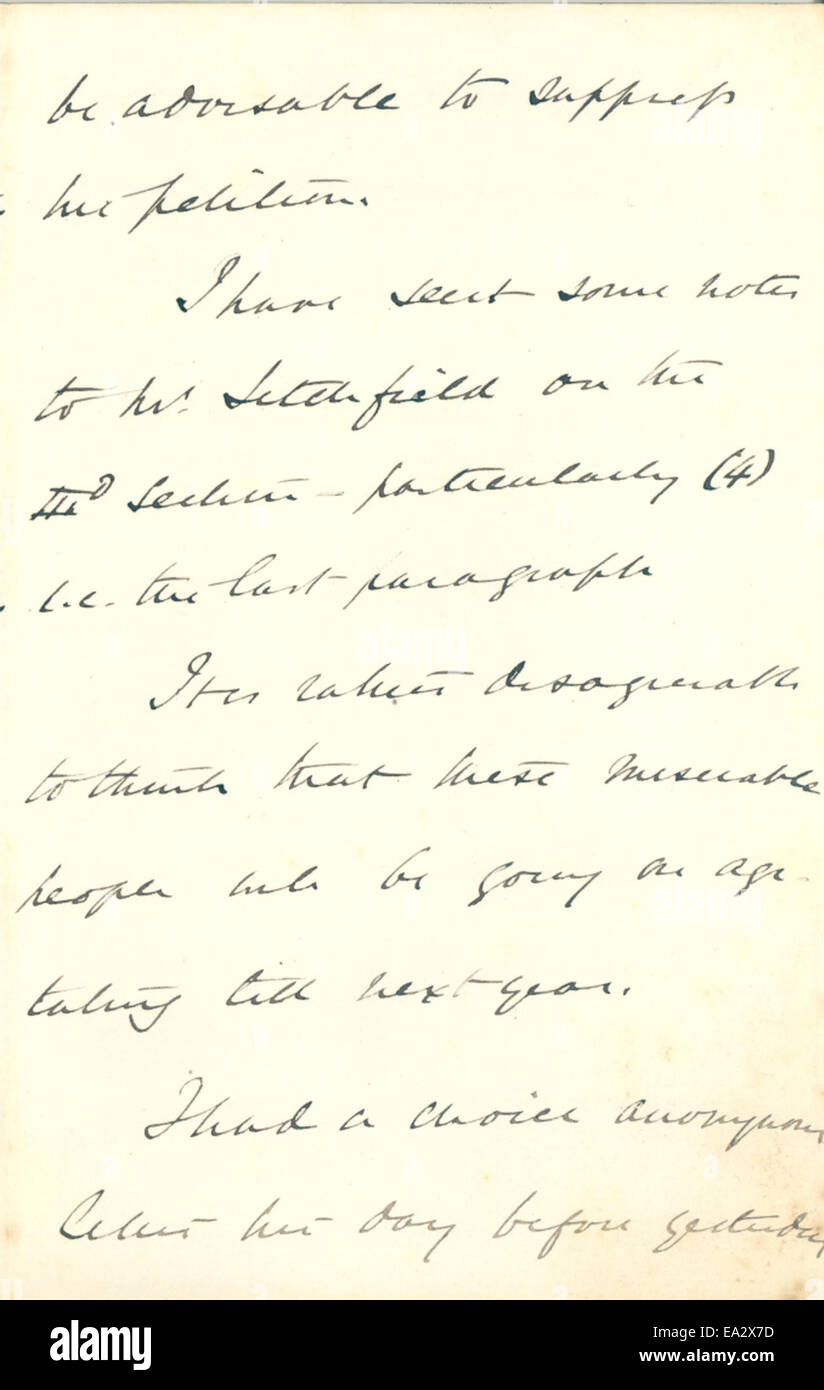 be advisable to suppress
the petition.
I have sent some notes
to Mr. Litchfield on the
IIId Section – particularly (4)
i.e. the last paragraph
It is rather disagreeable
to think that these miserable
people will be going on agi-
tating till next year.
I had a choice anonymous
letter the day before yesterday
alamy
alamy
alamy
alamy
Image ID: EA2X7D
www.alamy.com